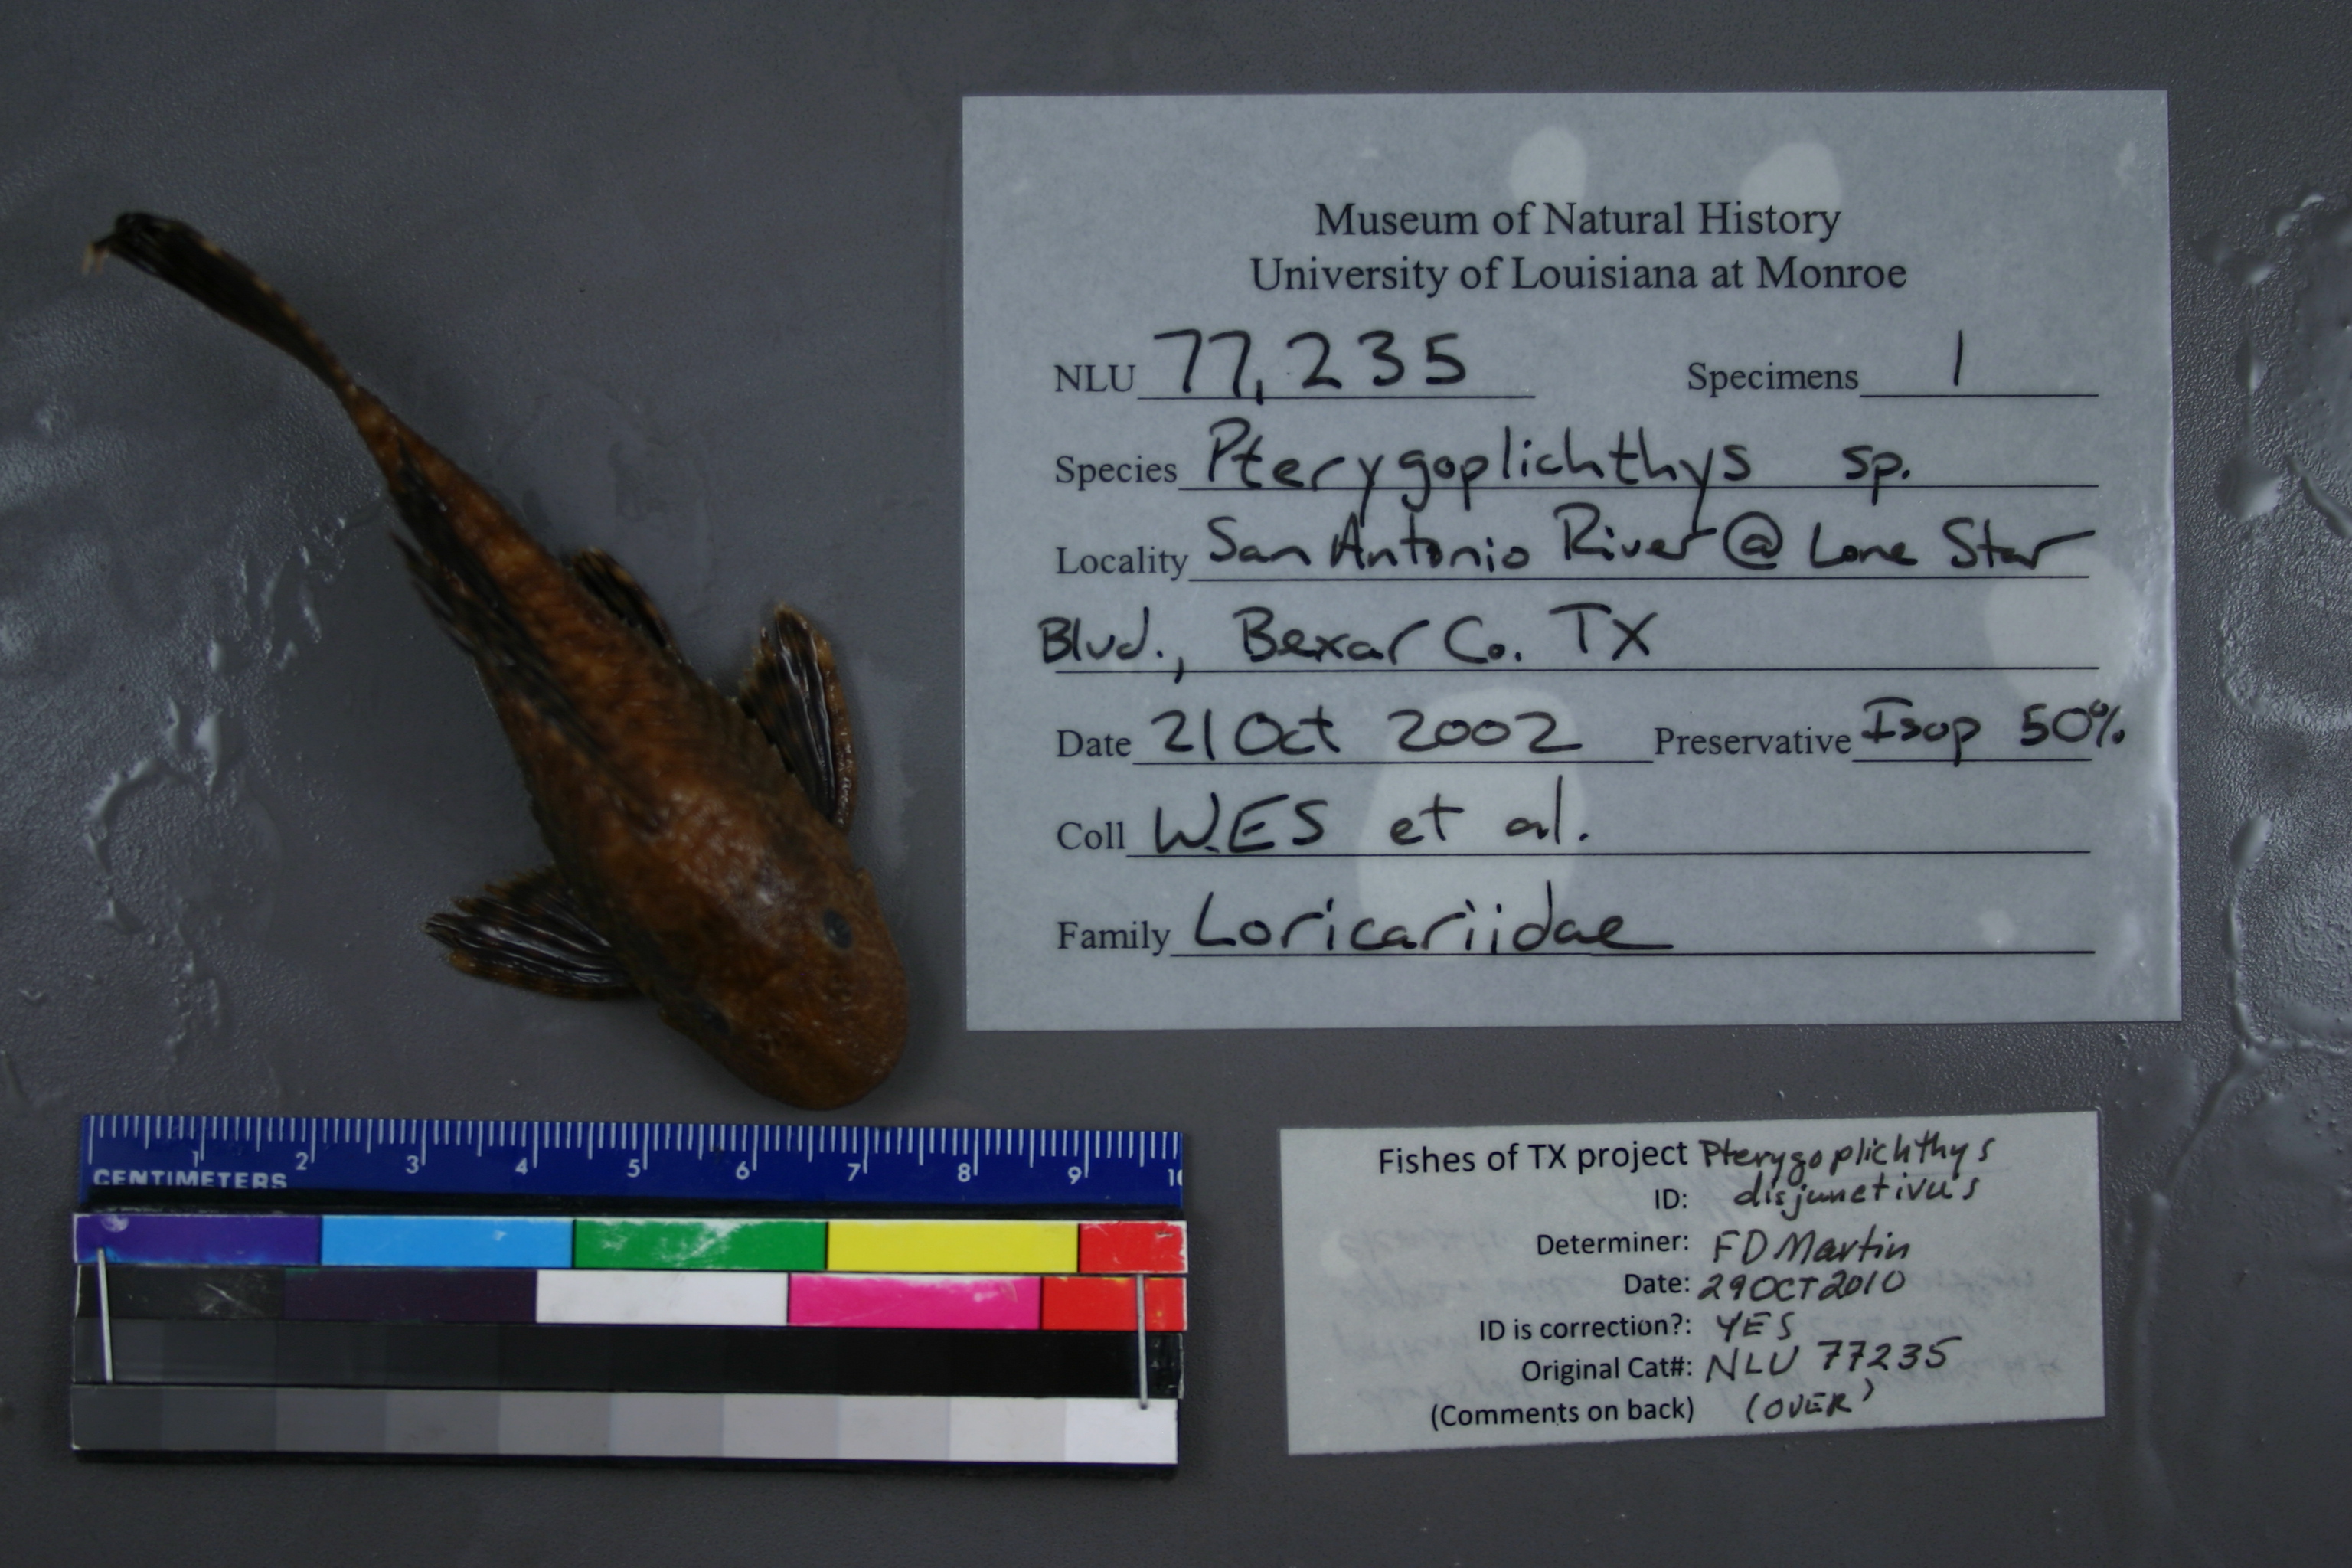 Museum of Natural History
University of Louisiana at Monroe
NLU 77,235 Specimens 1
Species Pterygoplichthys sp.
Locality San Antonio River @ Lone Star
Blvd., Bexar Co. TX
Date 21 Oct 2002 Preservative Isop 50%
Coll W.ES et al.
Family Loricariidae
1 2 3 4 5 6 7 8 9 10
CENTIMETERS
Fishes of TX project Pterygoplichthys
ID: disjunctivus
Determiner: FD Martin
Date: 29 OCT 2010
ID is correction?: YES
Original Cat#: NLU 77235
(Comments on back) (OVER)